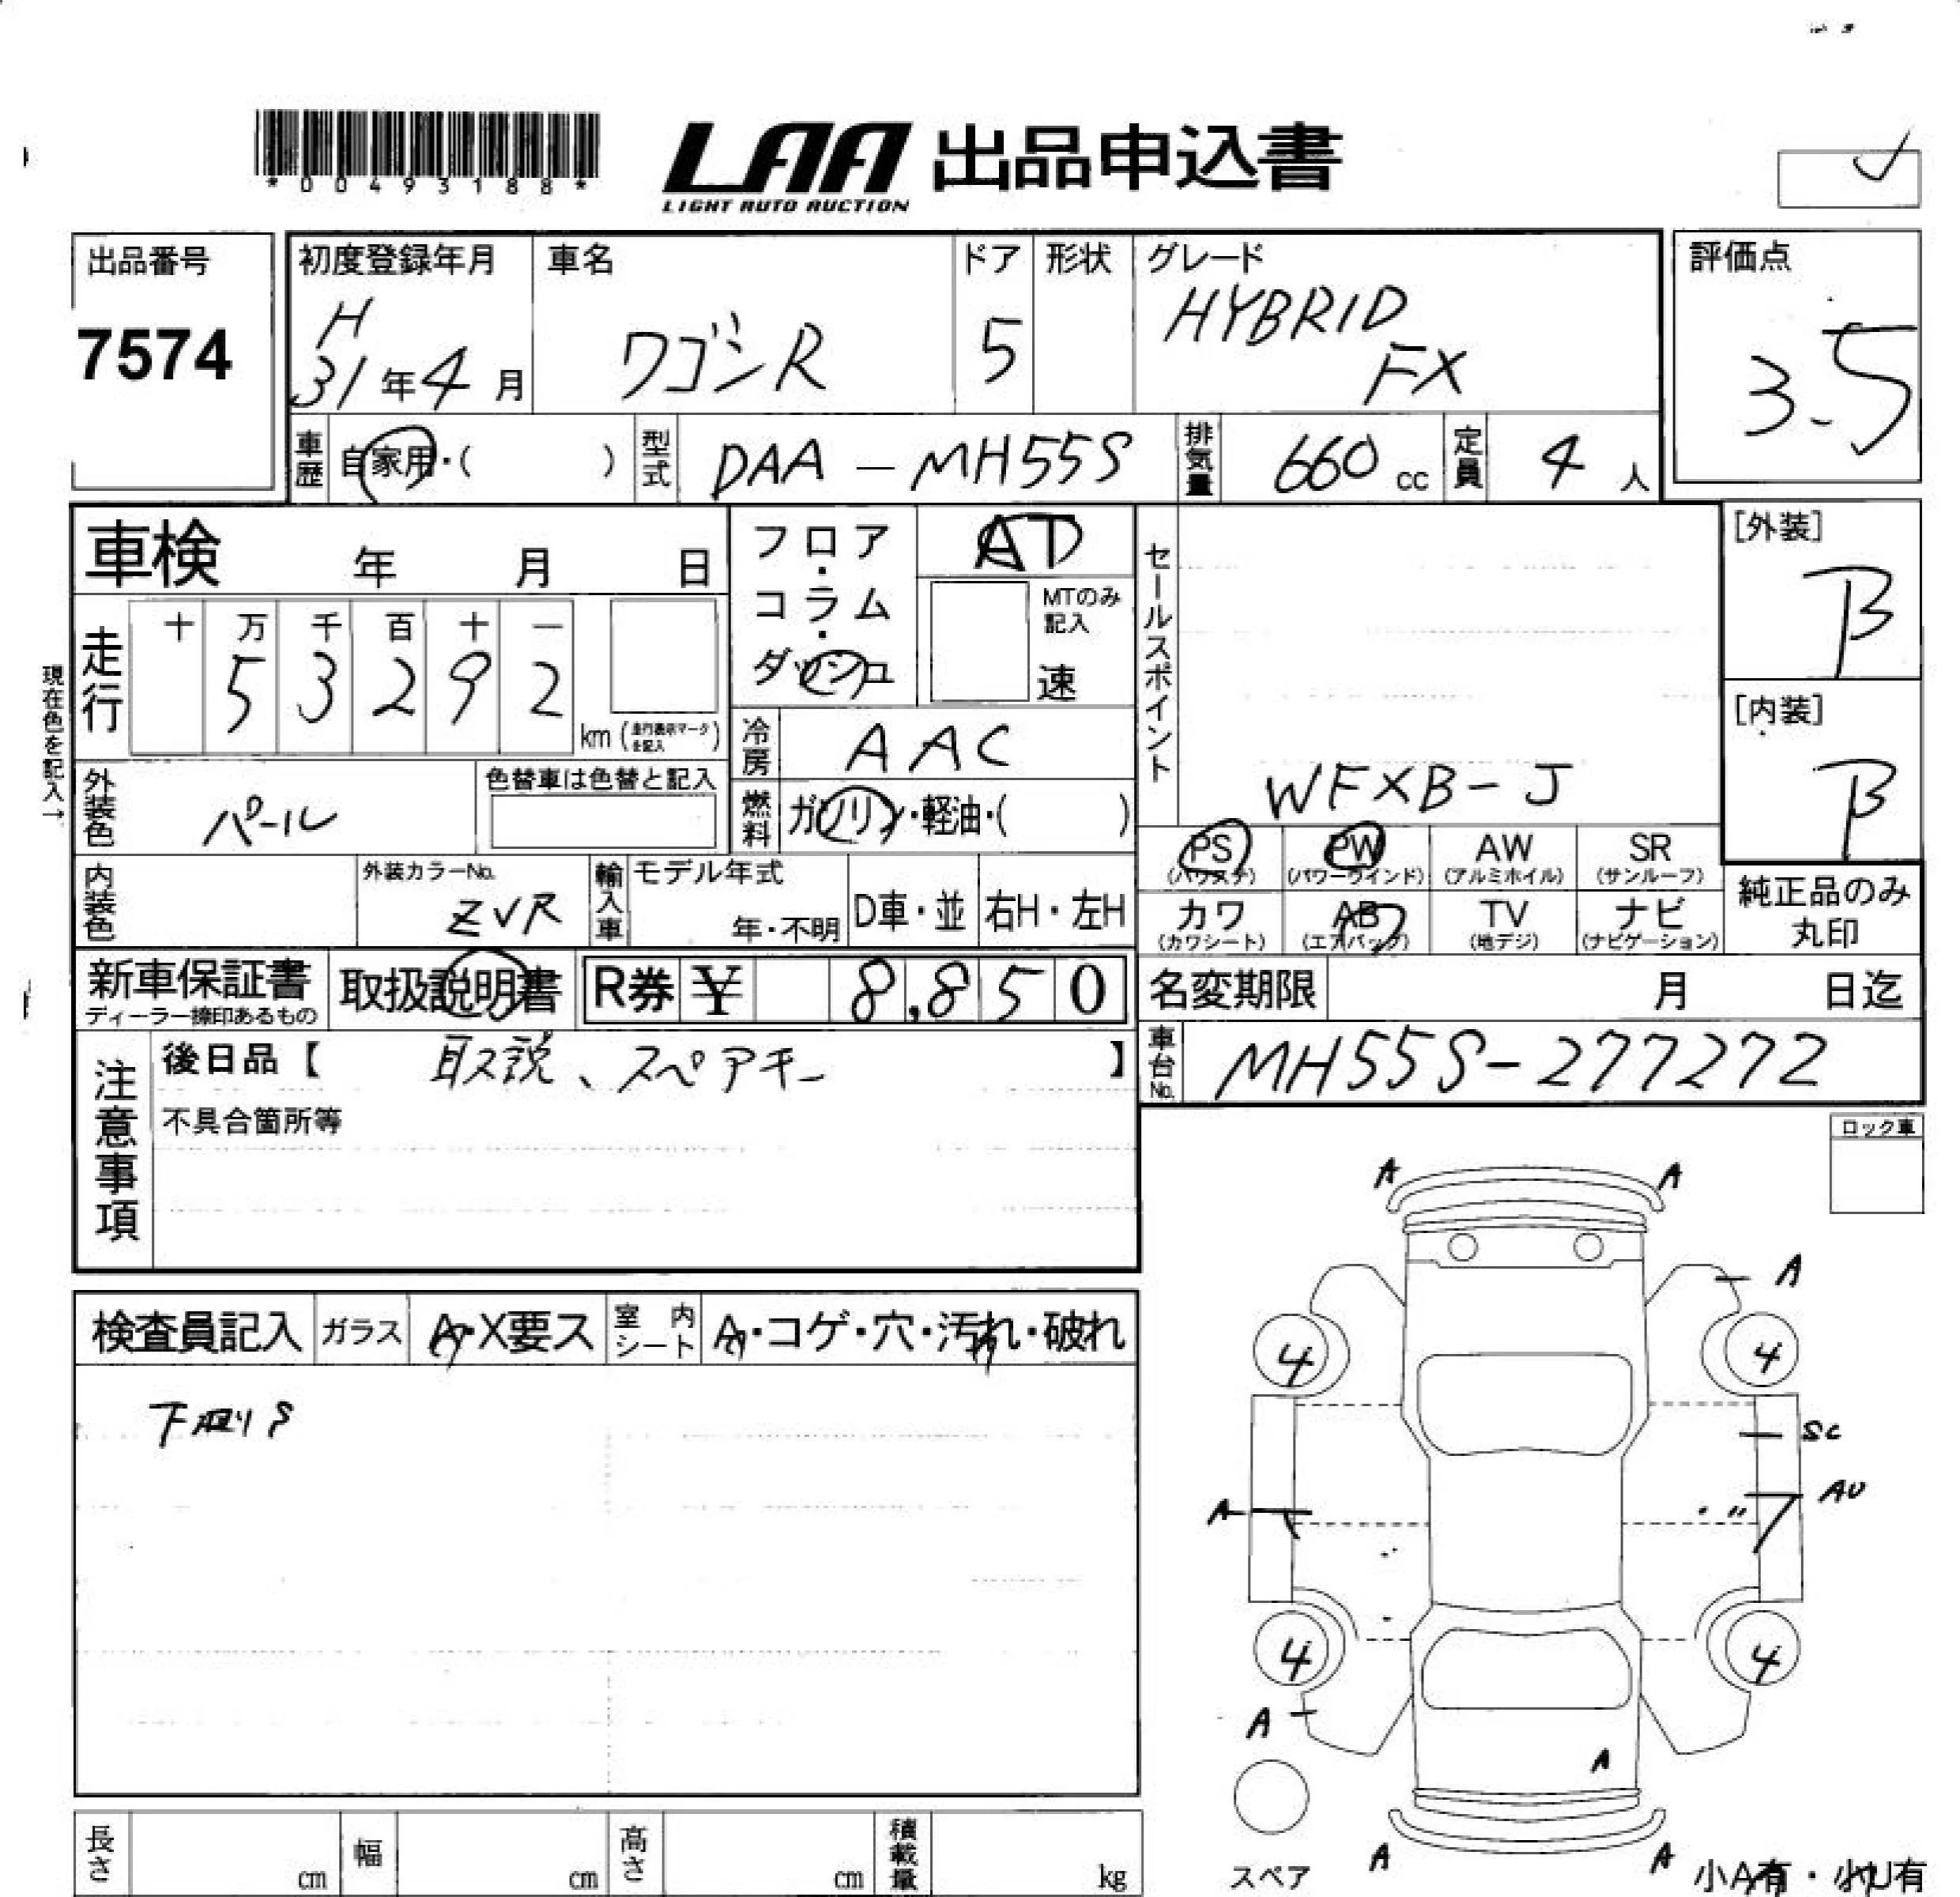 *00493188*
LAA 出品申込書
LIGHT AUTO AUCTION
出品番号
7574
初度登録年月
H
31年4月
車名
ワゴンR
ドア
5
形状
グレード
HYBRID
FX
評価点
3.5
車歴 自家用・( )
型式 DAA-MH55S
排気量 660 cc
定員 4 人
車検 年 月 日
フロア・コラム・ダッシュ
AT
MTのみ記入
速
セールスポイント
WFXB-J
[外装]
B
[内装]
B
現在色を記入→
走行
十 万 千 百 十 一
5 3 2 9 2
km (走行表示マークを記入)
冷房 AAC
外装色 パール
色替車は色替と記入
燃料 ガソリン・軽油・( )
PS (パワステ)
PW (パワーウインド)
AW (アルミホイル)
SR (サンルーフ)
内装色
外装カラーNo.
ZVR
輸入車
モデル年式
年・不明
D車・並
右H・左H
カワ (カワシート)
AB (エアバッグ)
TV (地デジ)
ナビ (ナビゲーション)
純正品のみ
丸印
新車保証書
ディーラー捺印あるもの
取扱説明書
R券 ¥ 8,850
名変期限 月 日迄
車台No. MH55S-277272
注意事項
後日品【 取説、スペアキー 】
不具合箇所等
ロック車
検査員記入
ガラス A・X要ス
室内シート A・コゲ・穴・汚れ・破れ
A A
A
4 4
SC
AU
A
4 4
A
A
A A
スペア
小A有・小U有
長さ cm
幅 cm
高さ cm
積載量 kg